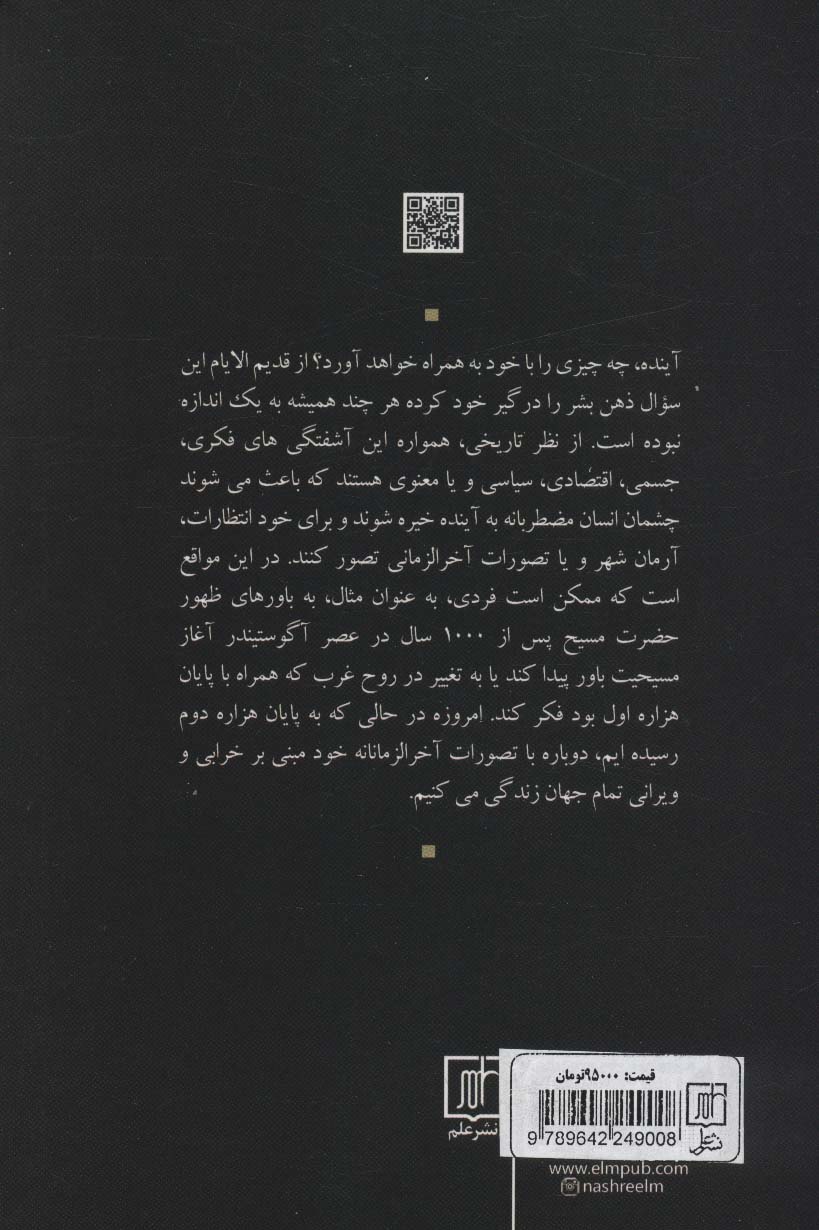 آینده، چه چیزی را با خود به همراه خواهد آورد؟ از قدیم الایام این
سؤال ذهن بشر را درگیر خود کرده هر چند همیشه به یک اندازه
نبوده است. از نظر تاریخی، همواره این آشفتگی های فکری،
جسمی، اقتصادی، سیاسی و یا معنوی هستند که باعث می شوند
چشمان انسان مضطربانه به آینده خیره شوند و برای خود انتظارات،
آرمان شهر و یا تصورات آخرالزمانی تصور کنند. در این مواقع
است که ممکن است فردی، به عنوان مثال، به باورهای ظهور
حضرت مسیح پس از ۱۰۰۰ سال در عصر آگوستیندر آغاز
مسیحیت باور پیدا کند یا به تغییر در روح غرب که همراه با پایان
هزاره اول بود فکر کند. امروزه در حالی که به پایان هزاره دوم
رسیده ایم، دوباره با تصورات آخرالزمانانه خود مبنی بر خرابی و
ویرانی تمام جهان زندگی می کنیم.
قیمت: ۹۵۰۰۰تومان
9 789642 249008
نشر علم
نشر علم
www.elmpub.com
nashreelm